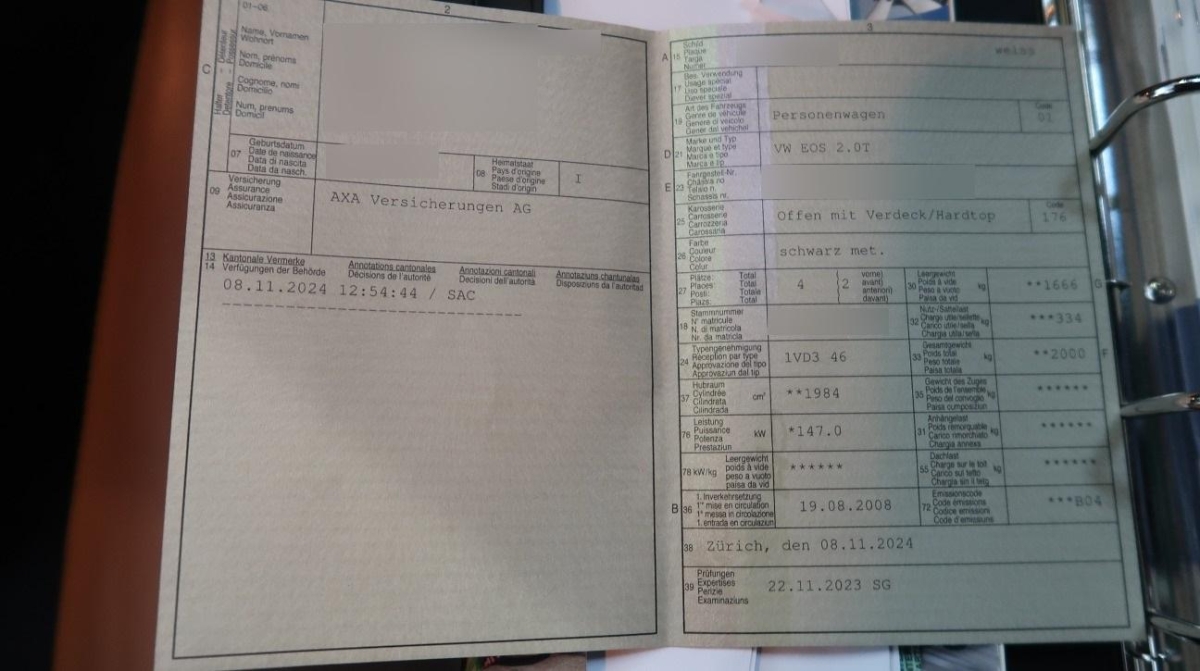 2
01-06
C
Halter - Détenteur
Detentore - Possessur
Name, Vornamen
Wohnort
Nom, prénoms
Domicile
Cognome, nomi
Domicilio
Num, prenums
Domicil
07
Geburtsdatum
Date de naissance
Data di nascita
Data da nasch.
08
Heimatstaat
Pays d'origine
Paese d'origine
Stadi d'origin
I
09
Versicherung
Assurance
Assicurazione
Assicuranza
AXA Versicherungen AG
13 Kantonale Vermerke Annotations cantonales Annotazioni cantonali Annotaziuns chantunalas
14 Verfügungen der Behörde Décisions de l'autorité Decisioni dell'autorità Disposiziuns da l'autoritad
08.11.2024 12:54:44 / SAC
3
A 15
Schild
Plaque
Targa
weiss
17
Bes. Verwendung
Usage spécial
Uso speciale
Diever spezial
19
Art des Fahrzeugs
Genre de véhicule
Genere di veicolo
Gener dal vehichel
Personenwagen
Code
01
D 21
Marke und Typ
Marque et type
Marca e tipo
Marca e tip
VW EOS 2.0T
E 23
Fahrgestell-Nr.
Châssis no
Telaio n.
Schassis nr.
25
Karosserie
Carrosserie
Carrozzeria
Carossaria
Offen mit Verdeck/Hardtop
Code
176
26
Farbe
Couleur
Colore
Colur
schwarz met.
27
Plätze: Total
Places: Total
Posti: Totale
Plazs: Total
4
(2
vorne)
avant)
anteriori)
davant)
30
Leergewicht
Poids à vide
Peso a vuoto
Paisa da vid
kg
**1666
G
18
Stammnummer
N° matricule
N. di matricola
Nr. da matricla
32
Nutz-/Sattellast
Charge utile/sellette
Carico utile/sella
Chargia utila/sella
kg
***334
24
Typengenehmigung
Réception par type
Approvazione del tipo
Approvaziun dal tip
1VD3 46
33
Gesamtgewicht
Poids total
Peso totale
Paisa totala
kg
**2000
F
37
Hubraum
Cylindrée
Cilindrata
Cilindrada
cm³
**1984
35
Gewicht des Zuges
Poids de l'ensemble
Peso del convoglio
Paisa cumposiziun
kg
******
76
Leistung
Puissance
Potenza
Prestaziun
kW
*147.0
31
Anhängelast
Poids remorquable
Carico rimorchiato
Chargia annexa
kg
******
78 kW/kg
Leergewicht
poids à vide
peso a vuoto
paisa da vid
******
55
Dachlast
Charge sur le toit
Carico sul tetto
Chargia sin il tetg
kg
******
B 36
1. Inverkehrsetzung
1re mise en circulation
1a messa in circolazione
1. entrada en circulaziun
19.08.2008
72
Emissionscode
Code émissions
Codice emissioni
Code d'emissiuns
***B04
38 Zürich, den 08.11.2024
39
Prüfungen
Expertises
Perizie
Examinaziuns
22.11.2023 SG